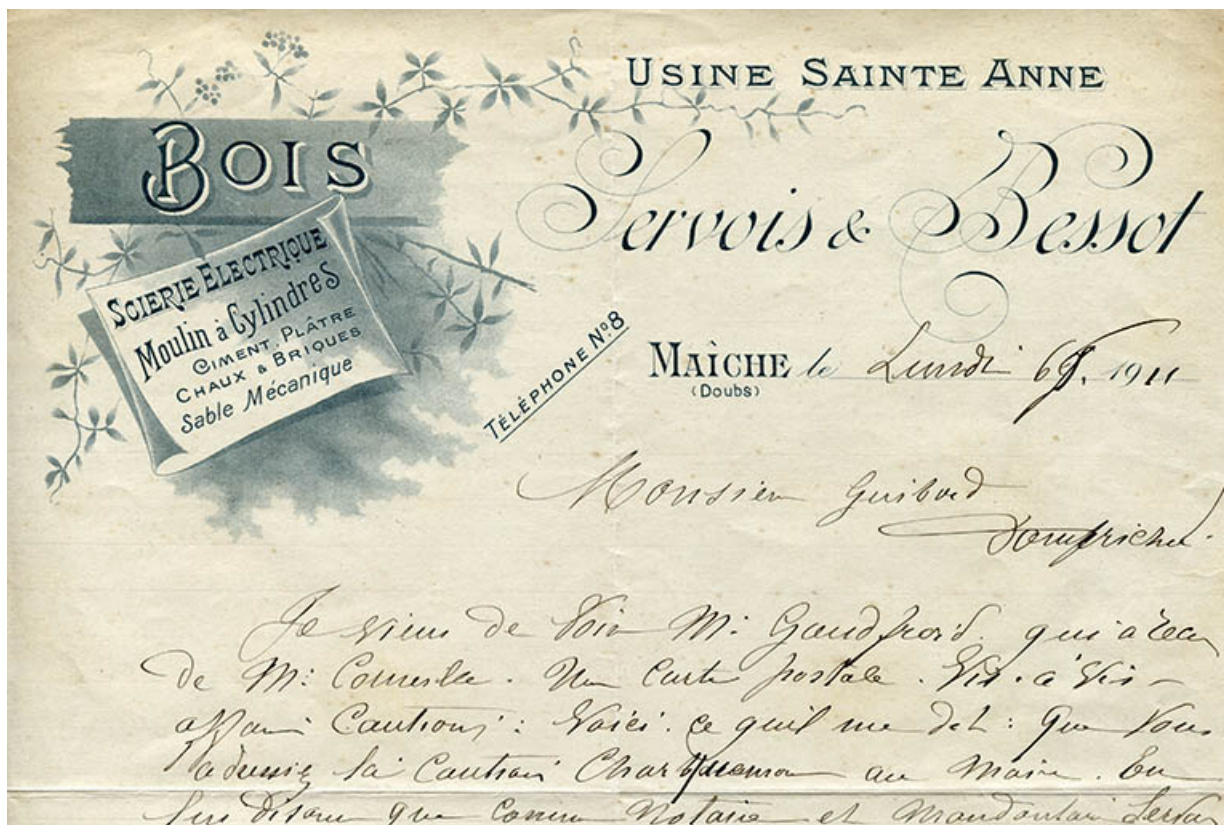 USINE SAINTE ANNE
BOIS
Servois & Bessot
SCIERIE ELECTRIQUE
Moulin à Cylindres
CIMENT, PLÂTRE
CHAUX & BRIQUES
Sable Mécanique
TÉLÉPHONE Nº 8
MAÎCHE le Lundi 6 1911
(Doubs)
Monsieur Guibard
Je viens de Voir M. Gaudfroid. qui a reçu
de M. Corneille. Un Carte postale. Vis. à Vis
affaire Cautions : Voici. ce quil me dit : que Vous
adressiez la Caution au Maire. En
lui disant que comme Notaire et Mandataire